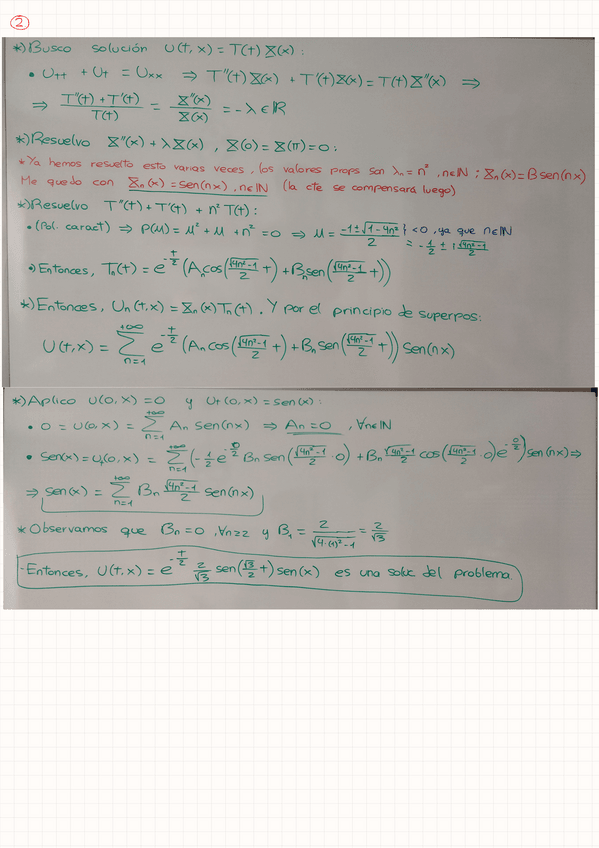 2
*) Busco solución U(t,x) = T(t) X(x) :
• Utt + Ut = Uxx ⇒ T''(t) X(x) + T'(t) X(x) = T(t) X''(x) ⇒
⇒ (T''(t) + T'(t)) / T(t) = X''(x) / X(x) = -λ ∈ ℝ
*) Resuelvo X''(x) + λ X(x) , X(0) = X(π) = 0 :
* Ya hemos resuelto esto varias veces, los valores props son λn = n², n∈ℕ ; Xn(x) = B sen(nx)
Me quedo con Xn(x) = sen(nx), n∈ℕ (la cte se compensará luego)
*) Resuelvo T''(t) + T'(t) + n² T(t) :
• (Pol. caract) ⇒ P(μ) = μ² + μ + n² = 0 ⇒ μ = (-1 ± √(1-4n²)) / 2 } < 0, ya que n∈ℕ
= -1/2 ± i √(4n²-1)/2
• Entonces, Tn(t) = e^(-t/2) (An cos(√(4n²-1)/2 t) + Bn sen(√(4n²-1)/2 t))
*) Entonces, Un(t,x) = Xn(x) Tn(t). Y por el principio de superpos:
U(t,x) = Σ_{n=1}^{+∞} e^(-t/2) (An cos(√(4n²-1)/2 t) + Bn sen(√(4n²-1)/2 t)) sen(nx)
*) Aplico U(0,x) = 0 y Ut(0,x) = sen(x) :
• 0 = U(0,x) = Σ_{n=1}^{+∞} An sen(nx) ⇒ An = 0 , ∀n∈ℕ
• sen(x) = Ut(0,x) = Σ_{n=1}^{+∞} (-1/2 e^(-0/2) Bn sen(√(4n²-1)/2 · 0) + Bn √(4n²-1)/2 cos(√(4n²-1)/2 · 0) e^(-0/2)) sen(nx) ⇒
⇒ sen(x) = Σ_{n=1}^{+∞} Bn √(4n²-1)/2 sen(nx)
* Observamos que Bn = 0, ∀n≥2 y B1 = 2/√(4·(1)²-1) = 2/√3
- Entonces, U(t,x) = e^(-t/2) 2/√3 sen(√3/2 t) sen(x) es una soluc del problema.